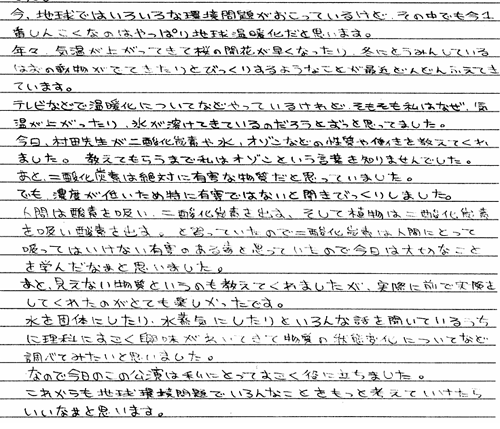 今、地球ではいろいろな環境問題がおこっているけど、その中でも今1
番しんこくなのはやっぱり地球温暖化だと思います。
年々、気温が上がってきて桜の開花が早くなったり、冬にとうみんしている
はずの動物がでてきたりとびっくりするようなことが最近どんどんふえてき
ています。
テレビなどで温暖化についてなどやっているけれど、そもそも私はなぜ、気
温が上がったり、氷が溶けてきているのだろうとずっと思ってました。
今日、村田先生が二酸化炭素や水、オゾンなどの性質や働きを教えてくれ
ました。教えてもらうまで私はオゾンという言葉を知りませんでした。
あと、二酸化炭素は絶対に有害な物質だと思っていました。
でも、濃度が低いため特に有害ではないと聞きびっくりしました。
人間は酸素を吸い、二酸化炭素を出す、そして植物は二酸化炭素
を吸い酸素を出す。と習っていたので二酸化炭素は人間にとって
吸ってはいけない有害のある毒と思っていたので今日は大切なこと
を学んだなぁと思いました。
あと、見えない物質というのも教えてくれましたが、実際に前で実験を
してくれたのがとても楽しかったです。
水を固体にしたり、水蒸気にしたりといろんな話を聞いているうち
に理科にすごく興味がわいてきて物質の状態変化についてなど
調べてみたいと思いました。
なので今日のこの公演は私にとってすごく役に立ちました。
これからも地球環境問題でいろんなことをもっと考えていけたら
いいなぁと思います。